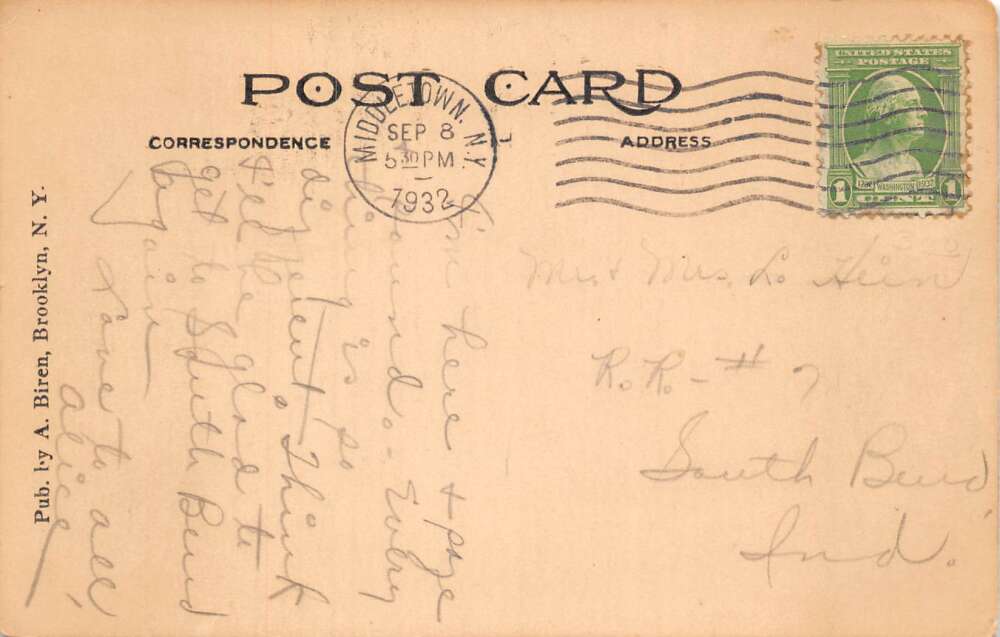 POST CARD
CORRESPONDENCE
ADDRESS
MIDDLETOWN, N.Y.
SEP 8
5 30 PM
1932
UNITED STATES
POSTAGE
WASHINGTON
1 CENT 1
Pub. by A. Biren, Brooklyn, N. Y.
I'm here &
sound. Every
thing is so
different. Think
I'll be glad to
get to South Bend
again
Love to all,
Alice
Mr & Mrs. L.
R.R. - # 7
South Bend
Ind.